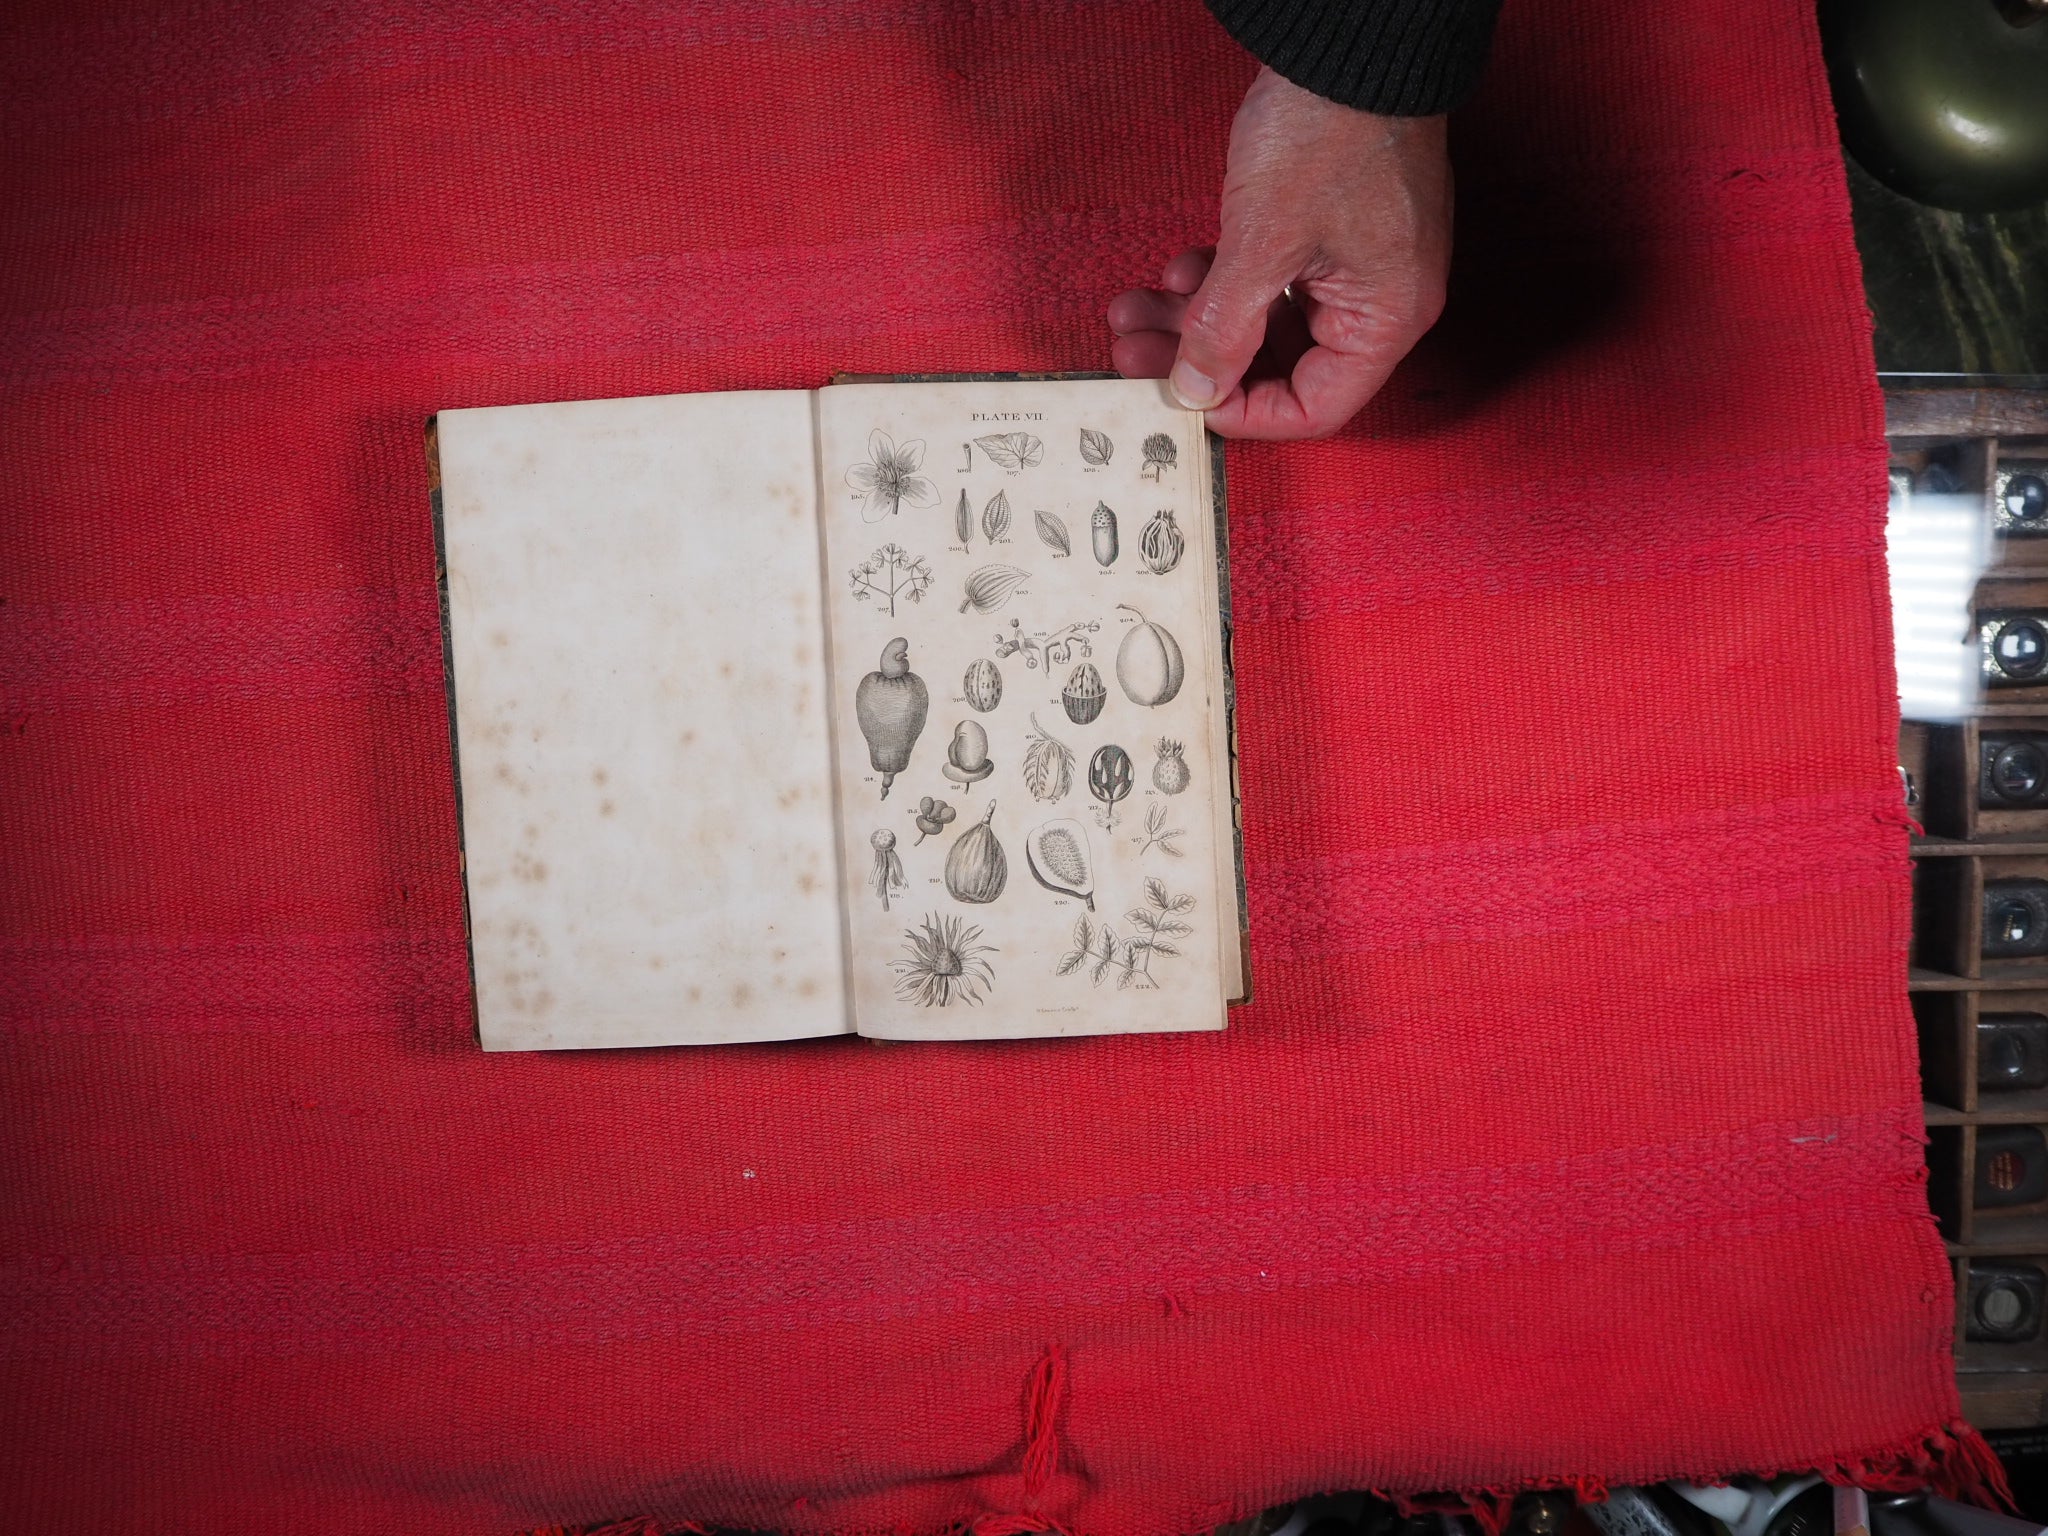 PLATE VII.
195.
196.
197.
198.
199.
200.
201.
202.
205.
206.
207.
203.
208.
204.
209.
211.
210.
214.
216.
212.
213.
215.
217.
218.
219.
220.
221.
222.